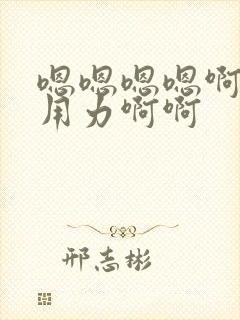 嗯嗯嗯嗯啊
用力啊啊
邢志彬